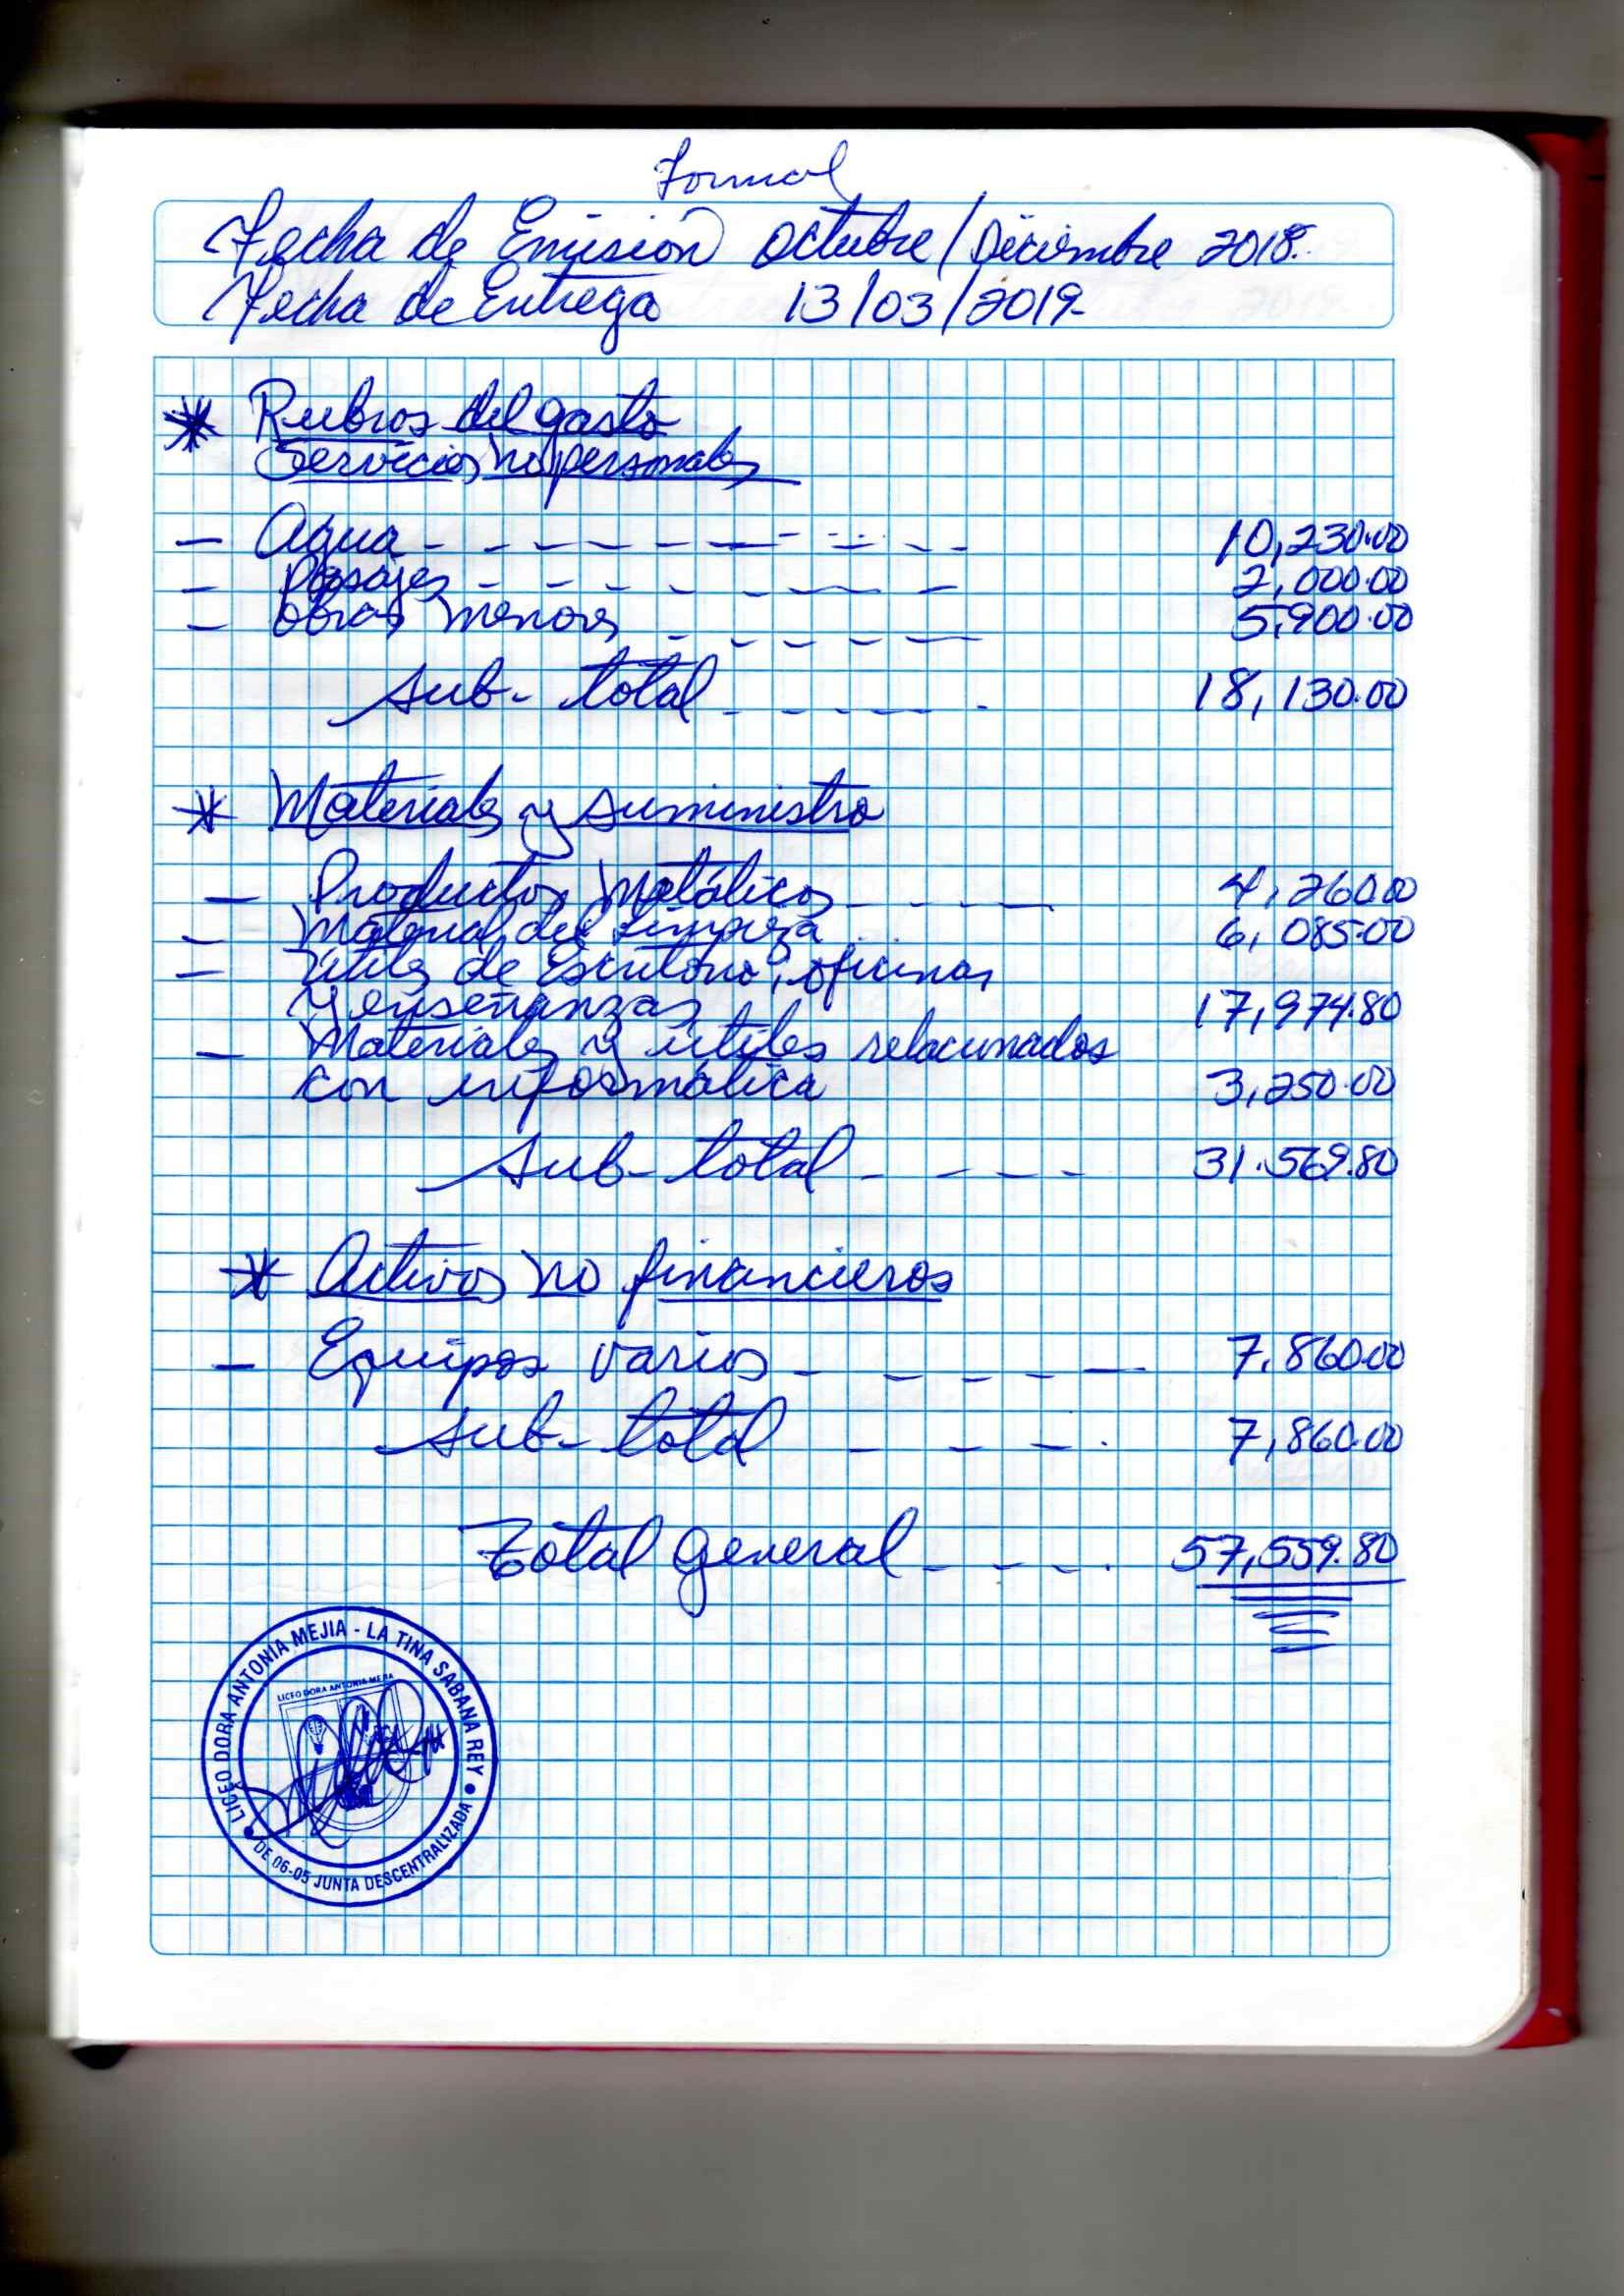 Formal
Fecha de Emisión Octubre/Diciembre 2018.
Fecha de Entrega 13/03/2019-
* Rubros del gasto
Servicios no personales
- Agua - - - - - - - - - - - 10,230.00
- Pasajes - - - - - - - - 2,000.00
- Obras menores - - - - - 5,900.00
Sub-total - - - - - - 18,130.00
* Materiales y suministro
- Productos Metálicos - - - - 4,260.00
- Material del Limpieza . . 6,085.00
- Utiles de Escritorio, oficinas
y enseñanzas 17,974.80
- Materiales y útiles relacionados
con informática 3,250.00
Sub-total - - - - 31.569.80
* Activos no financieros
- Equipos varios - - - - - - 7,860.00
Sub-total - - - . 7,860.00
Total general - - - . 57,559.80
LICEO DORA ANTONIA MEJIA - LA TINA SABANA REY
LICEO DORA ANTONIA MEJIA
DE 06-05 JUNTA DESCENTRALIZADA